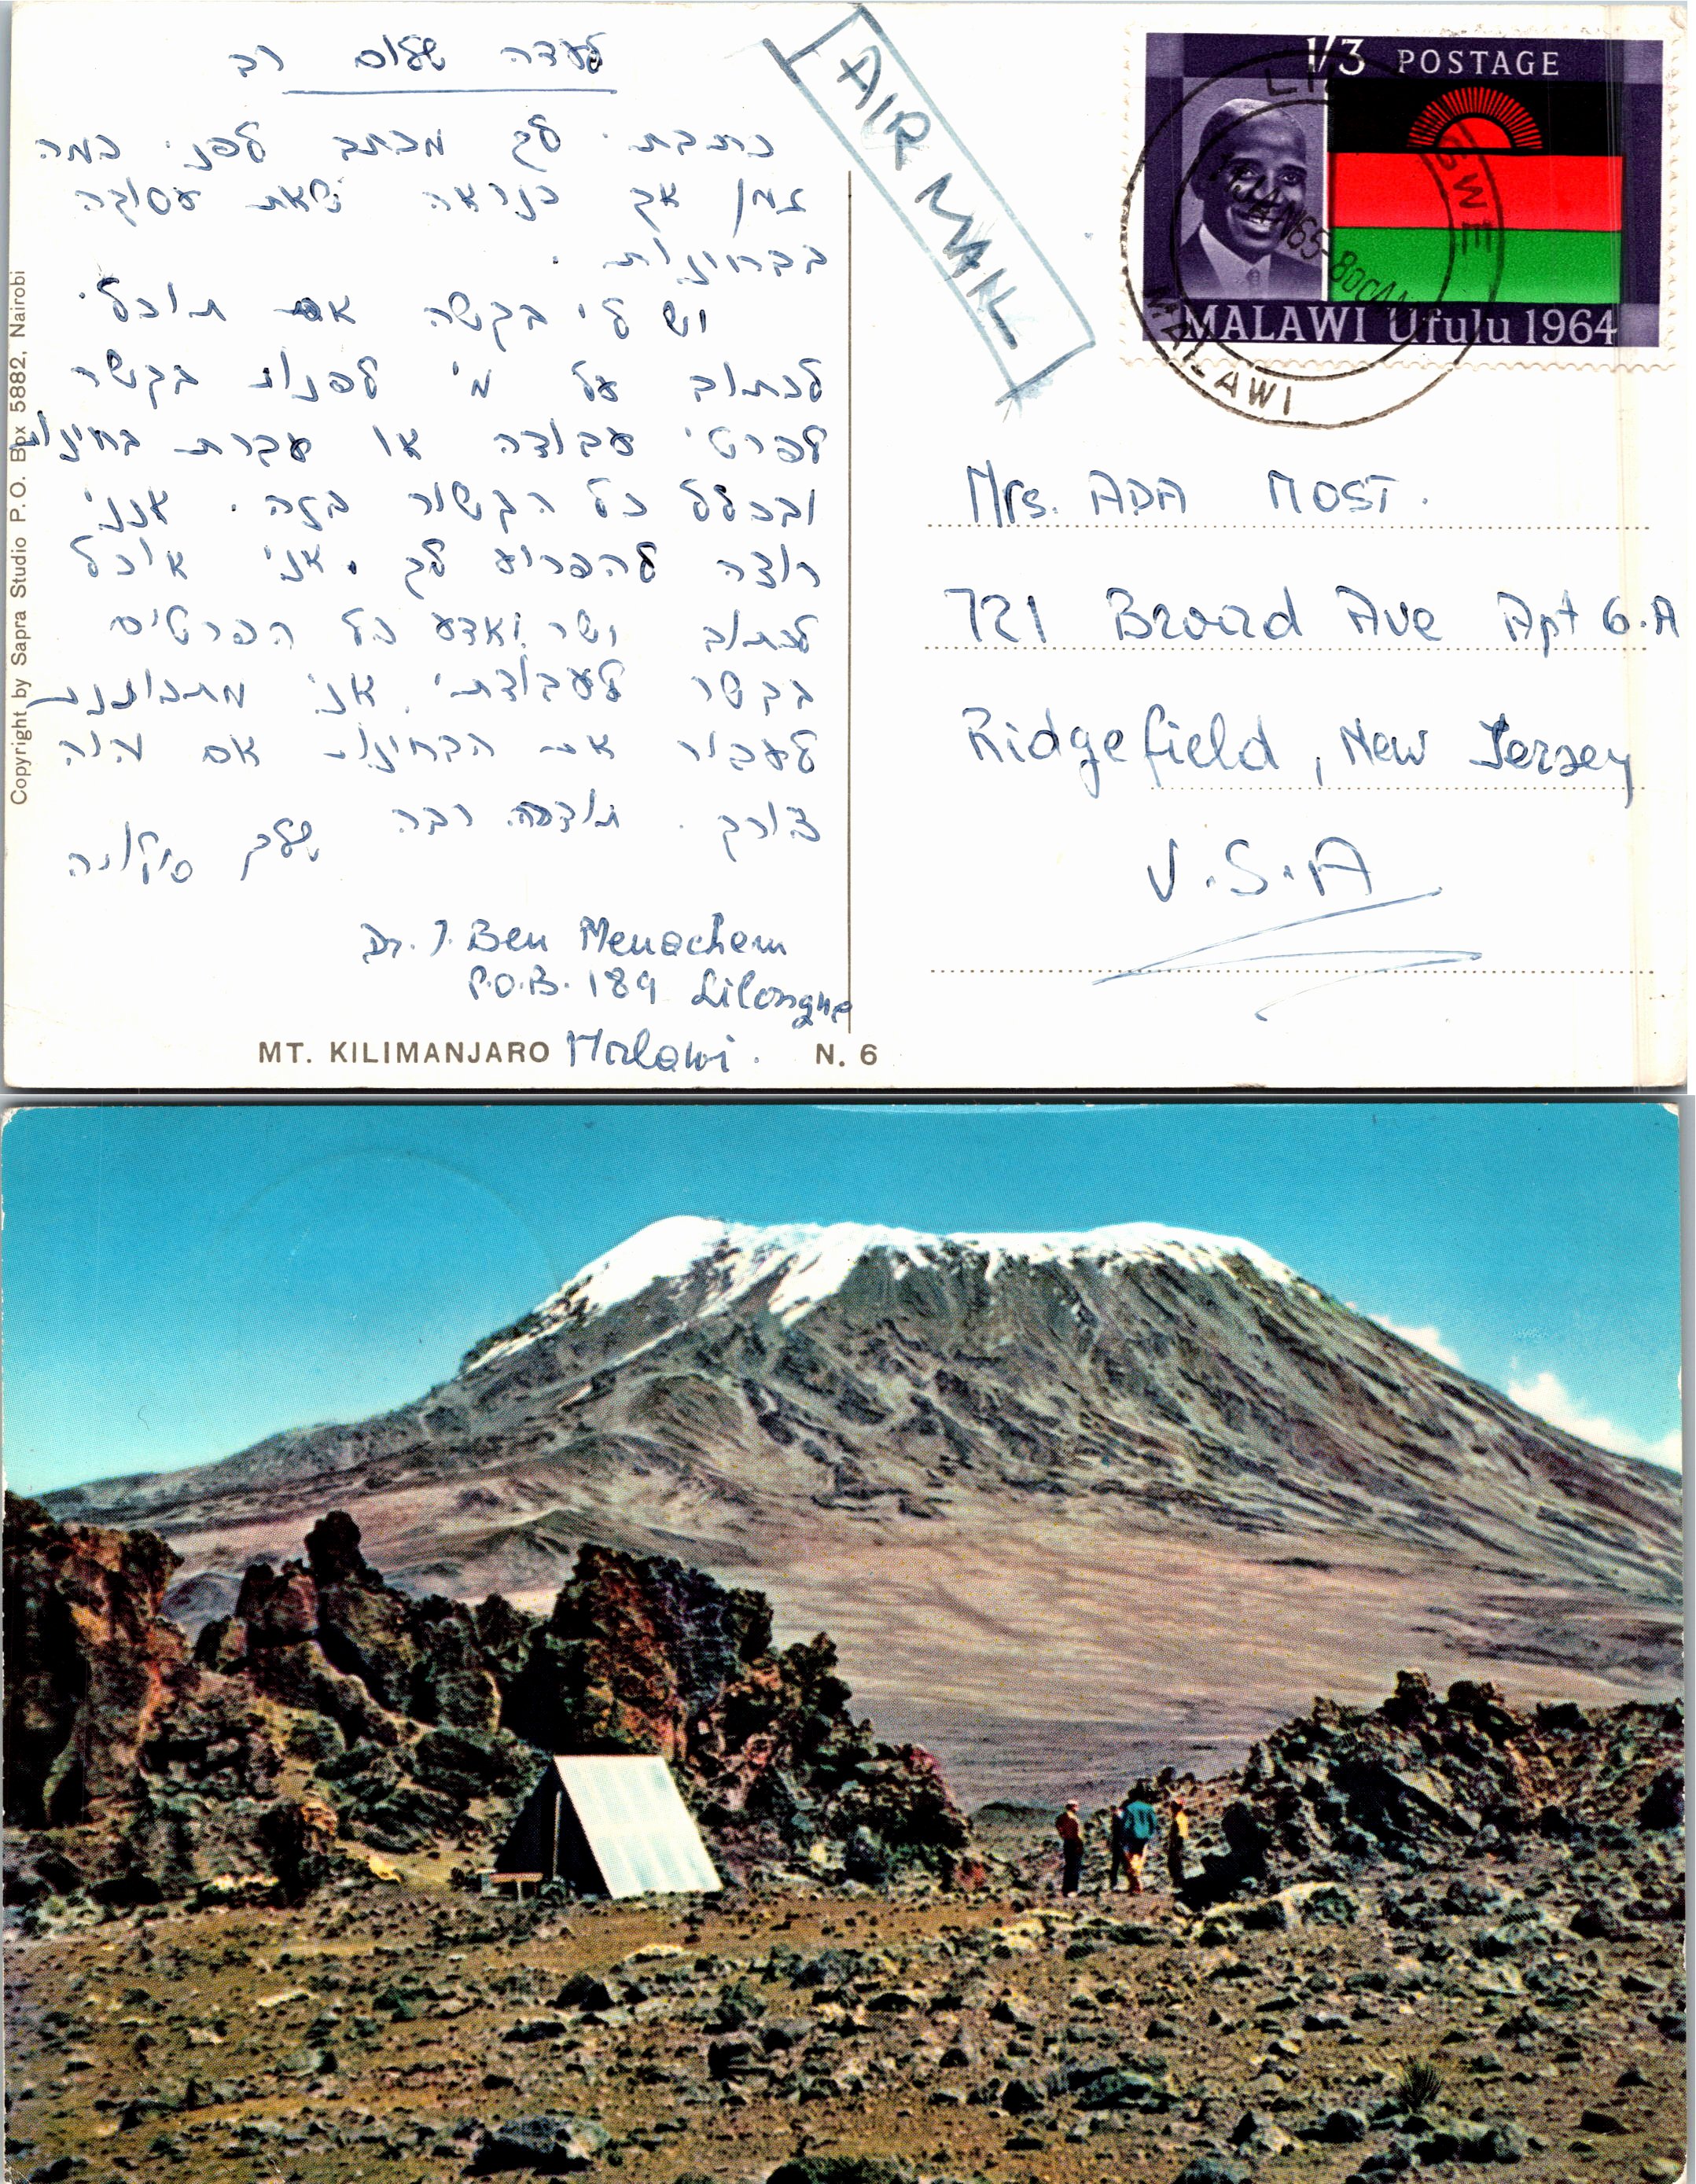 לעדה שלום רב
כתבתי לך מכתב לפני כמה
זמן אך כנראה שאת עסוקה
בבחינות.
יש לי בקשה אם תוכלי
לכתוב על מי לפנות בקשר
לפרטי עבודה או עברת בחינות
ובכלל כל הקשור בזה. אינני
רוצה להפריע לך. אני אוכל
לכתוב ישר ואדע כל הפרטים
בקשר לעבודתי. אני מתכוננת
לעבור את הבחינות אם יהיה
צורך. תודה רבה
שלך
Dr. J. Ben Menachem
P.O.B. 189 Lilongwe
Malawi.
MT. KILIMANJARO N. 6
Copyright by Sapra Studio P.O. Box 5882, Nairobi
AIR MAIL
1/3 POSTAGE
MALAWI Ufulu 1964
JAN 65-800AM
MALAWI
Mrs. ADA MOST.
721 Broad Ave Apt 6.A
Ridgefield, New Jersey
U.S.A